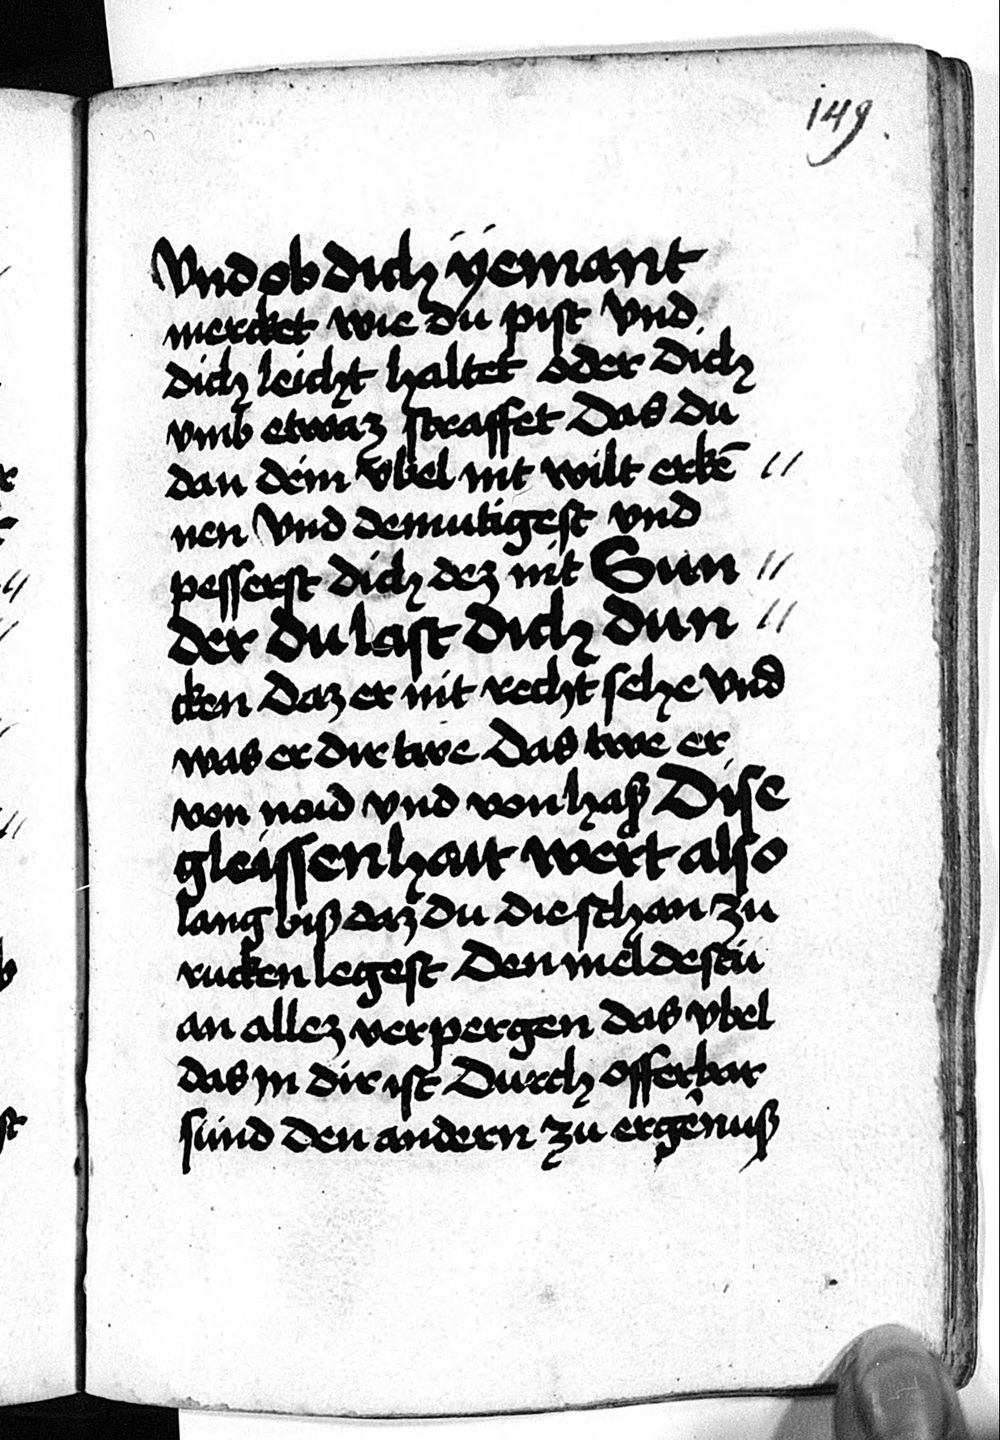 149.
Vnd ob dich yemant
mercket wie du pist vnd
dich leicht haltet oder dich
vmb etwaz straffet Das du
dan dein vbel nit wilt erkē //
nen Vnd demutigest vnd
pesserst dich dez nit Sun //
der du last dich dun //
cken Daz er nit recht sehe vnd
was er dir twe Das twe er
von neid vnd von haß Dise
gleissenhait wert also
lang biß daz du die schan zu
rucken legest Den meldestu
an allez verpergen das vbel
das in dir ist Durch offerbar
sünd den andern zu ergernuß